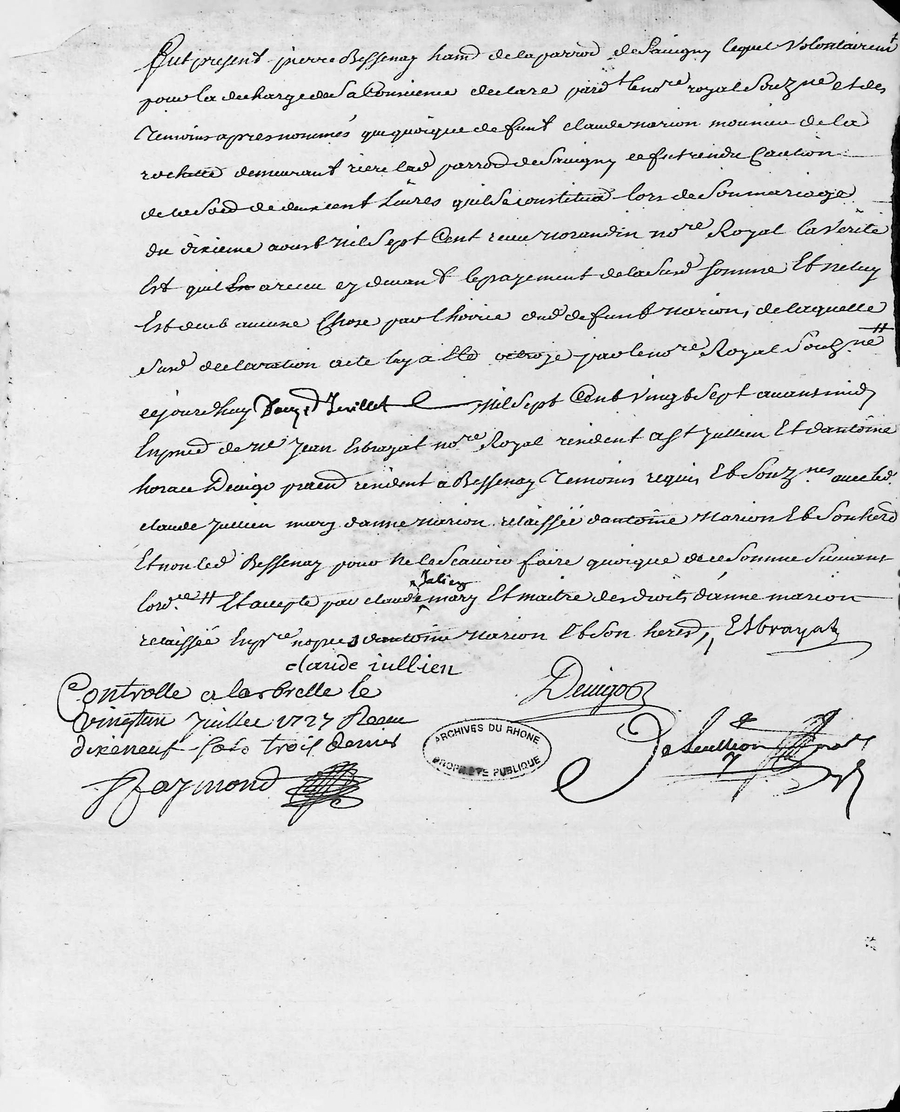 Fut present pierre Bessenay hand de la parroe de Savigny lequel volontairemt
pour la decharge de sa Consience declare pardt le nore royal Souzne et des
temoins apres nommés que quoique defunt claude marion mounier de la
rochette demeurant riere lad parroe de Savigny se fut rendu Caution
de la Somme de deux cent livres quil Se constitua lors de Son mariage
du dixieme aoust mil Sept Cent receu morandin nore Royal la verité
Est quil a receu cy devant le payement de la Susd Somme Et ne luy
Est deub aucune Chose par lhoirie dud defunt marion, de laquelle
Susd declaration acte luy a esté octroyé par le nore Royal Souzné
cejourdhuy Juillet mil Sept Cent vingt Sept avant midy
En pnce de me Jean Esbrayat nore Royal resident a St Jullien Et dantoine
horace Deuigo resident a Bessenay temoins requis Et Souznes avec led
claude Jullien mary danne marion relaissée dantoine marion Et Son herd
Et non led Bessenay pour ne le Scavoir faire quoique de ce Sommé Suivant
lordce Et accepte par claude Julien mary Et maitre des droits danne marion
relaissée En pre nopces dantoine marion Et Son hered, Esbrayat
claude iullien
Deuigo
Controllé a larbrelle le
vingtun Juillet 1727 Receu
dixeneuf sols trois deniers
Raymond
ARCHIVES DU RHONE
PROPRIÉTÉ PUBLIQUE